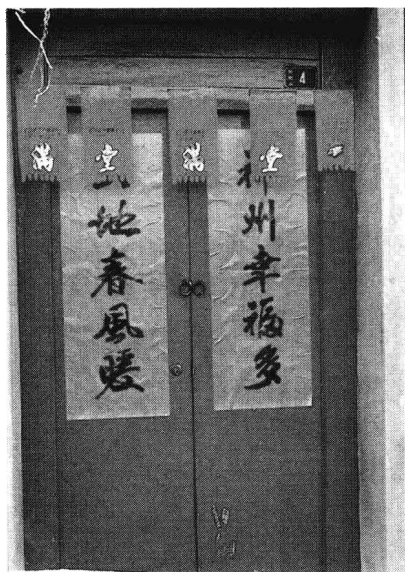 4
满 堂 满 堂
神州幸福多
地春風暖